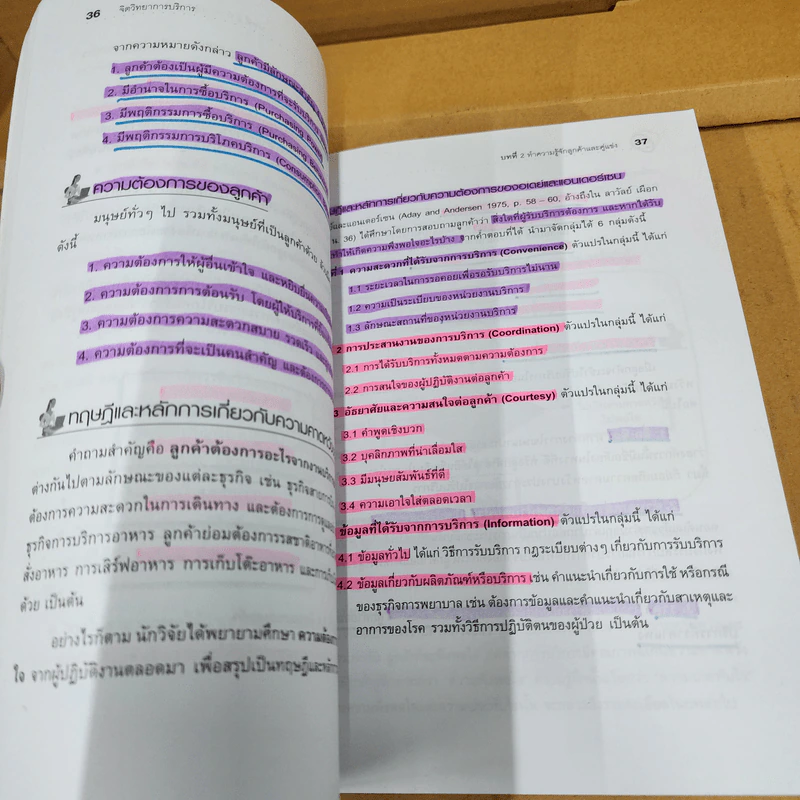 36 จิตวิทยาการบริการ
จากความหมายดังกล่าว ลูกค้ามีลักษณะ
1. ลูกค้าต้องเป็นผู้มีความต้องการที่จะรับบริการ
2. มีอำนาจในการซื้อบริการ (Purchasing
3. มีพฤติกรรมการซื้อบริการ (Purchasing
4. มีพฤติกรรมการบริโภคบริการ
ความต้องการของลูกค้า
มนุษย์ทั่วๆ ไป รวมทั้งมนุษย์ที่เป็นลูกค้าด้วย
ดังนี้
1. ความต้องการให้ผู้อื่นเข้าใจ และหยิบยื่น
2. ความต้องการการต้อนรับ โดยผู้ให้บริการ
3. ความต้องการความสะดวกสบาย รวดเร็ว และ
4. ความต้องการที่จะเป็นคนสำคัญ และต้องการ
ทฤษฎีและหลักการเกี่ยวกับความคาดหวัง
คำถามสำคัญคือ ลูกค้าต้องการอะไรจากงานบริการ
ต่างกันไปตามลักษณะของแต่ละธุรกิจ เช่น ธุรกิจสายการบิน
ต้องการความสะดวกในการเดินทาง และต้องการการดูแล
ธุรกิจการบริการอาหาร ลูกค้าย่อมต้องการรสชาติอาหาร
สั่งอาหาร การเสิร์ฟอาหาร การเก็บโต๊ะอาหาร และการ
ด้วย เป็นต้น
อย่างไรก็ตาม นักวิจัยได้พยายามศึกษา ความต้อง
ใจ จากผู้ปฏิบัติงานตลอดมา เพื่อสรุปเป็นทฤษฎีและหลักการ
บทที่ 2 ทำความรู้จักลูกค้าและคู่แข่ง 37
ทฤษฎีและหลักการเกี่ยวกับความต้องการของอเดย์และแอนเดอร์เซน
และแอนเดอร์เซน (Aday and Andersen 1975, p. 58 – 60, อ้างถึงใน ลาวัลย์ เผือก
36) ได้ศึกษาโดยการสอบถามลูกค้าว่า สิ่งใดที่ผู้รับบริการต้องการ และหากได้รับ
ทำให้เกิดความพึงพอใจอะไรบ้าง จากคำตอบที่ได้ นำมาจัดกลุ่มได้ 6 กลุ่มดังนี้
ที่ 1 ความสะดวกที่ได้รับจากการบริการ (Convenience) ตัวแปรในกลุ่มนี้ ได้แก่
1.1 ระยะเวลาในการรอคอยเพื่อรอรับบริการไม่นาน
1.2 ความเป็นระเบียบของหน่วยงานบริการ
1.3 ลักษณะสถานที่ของหน่วยงานบริการ
2 การประสานงานของการบริการ (Coordination) ตัวแปรในกลุ่มนี้ ได้แก่
2.1 การได้รับบริการทั้งหมดตามความต้องการ
2.2 การสนใจของผู้ปฏิบัติงานต่อลูกค้า
3 อัธยาศัยและความสนใจต่อลูกค้า (Courtesy) ตัวแปรในกลุ่มนี้ ได้แก่
3.1 คำพูดเชิงบวก
3.2 บุคลิกภาพที่น่าเลื่อมใส
3.3 มีมนุษยสัมพันธ์ที่ดี
3.4 ความเอาใจใส่ตลอดเวลา
ข้อมูลที่ได้รับจากการบริการ (Information) ตัวแปรในกลุ่มนี้ ได้แก่
4.1 ข้อมูลทั่วไป ได้แก่ วิธีการรับบริการ กฎระเบียบต่างๆ เกี่ยวกับการรับบริการ
4.2 ข้อมูลเกี่ยวกับผลิตภัณฑ์หรือบริการ เช่น คำแนะนำเกี่ยวกับการใช้ หรือกรณี
ของธุรกิจการพยาบาล เช่น ต้องการข้อมูลและคำแนะนำเกี่ยวกับสาเหตุและ
อาการของโรค รวมทั้งวิธีการปฏิบัติตนของผู้ป่วย เป็นต้น